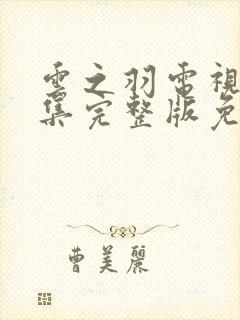 雲之羽電視
集完整版免
曹美麗